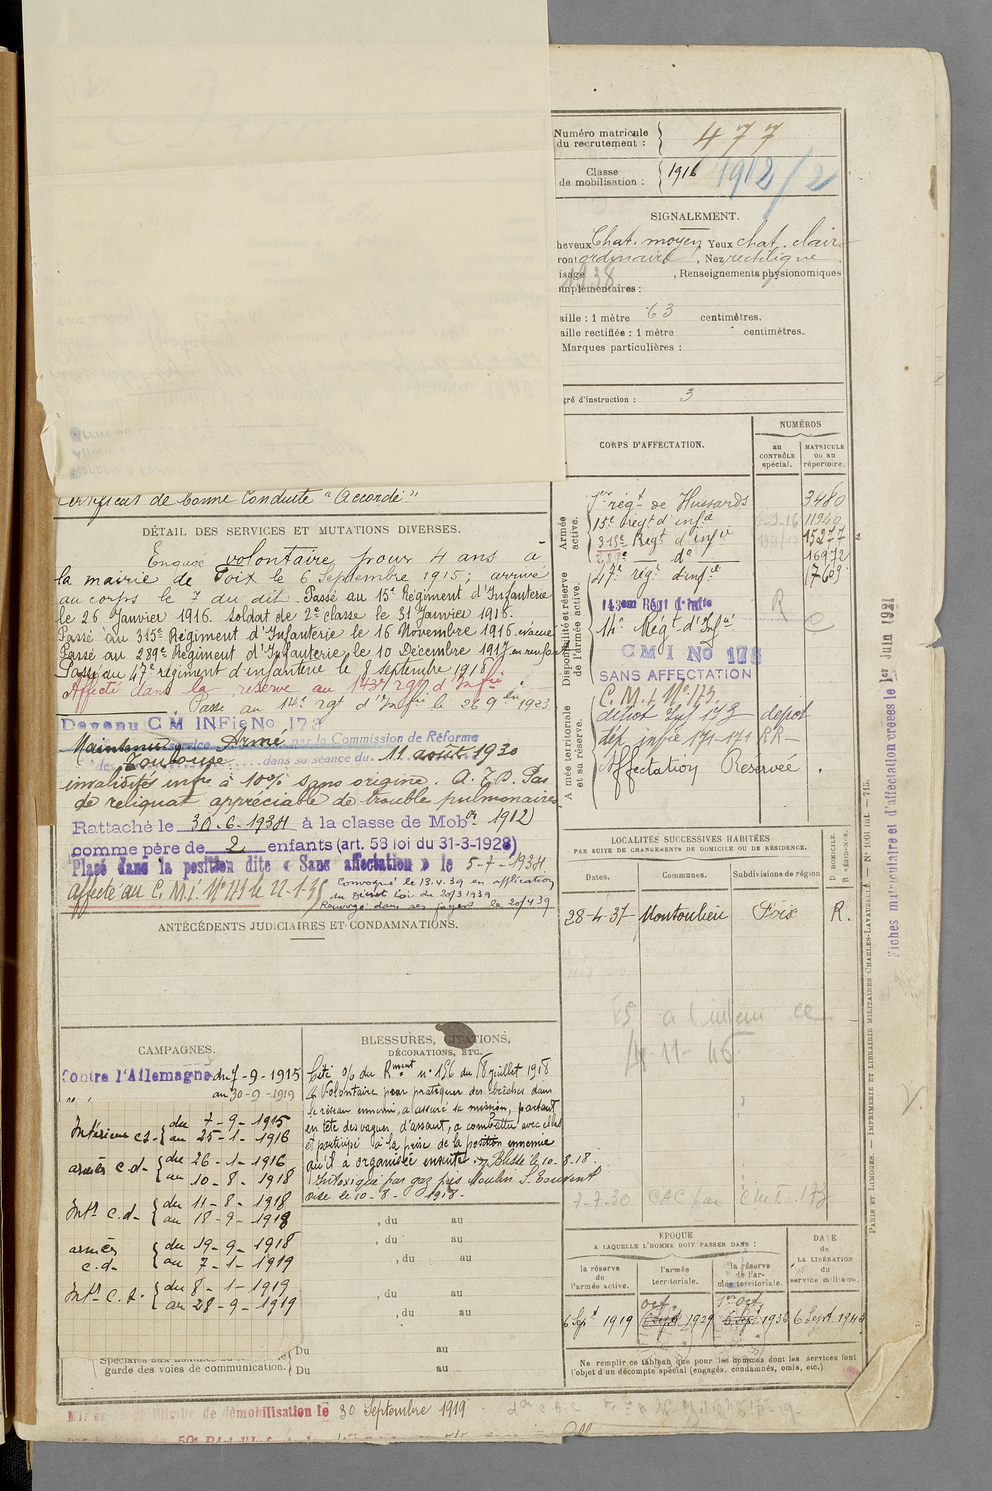 Numéro matricule du recrutement : 477
Classe de mobilisation : 1916 1912/2
SIGNALEMENT.
heveux Chat. moyen Yeux chat. clair
ront ordinaire, Nez rectiligne
isage 1938, Renseignements physionomiques
omplémentaires :
aille : 1 mètre 63 centimètres.
aille rectifiée : 1 mètre centimètres.
Marques particulières :
gré d'instruction : 3
CORPS D'AFFECTATION.
NUMÉROS
au CONTRÔLE spécial.
MATRICULE ou au répertoire.
Armée active.
rég^t de Hussards 3480
15e Régt d'infie 11940
315e Régt d'infie 15277
289e d° 16972
47e régt d'infie
Disponibilité et réserve de l'armée active.
143em Régt d'Infie R
14e Régt d'Infie
C M I No 173
SANS AFFECTATION
C. M. I. N° 173
A mée territoriale et sa réserve.
dépôt Inf 173 dépôt
dép. infie 171-171 RR
Affectation Réservée
Certificat de bonne conduite "Accordé"
DÉTAIL DES SERVICES ET MUTATIONS DIVERSES.
Engagé volontaire pour 4 ans à
la mairie de Foix le 6 Septembre 1915 ; arrivé
au corps le 7 du dit. Passé au 15e Régiment d'Infanterie
le 26 Janvier 1916. Soldat de 2e classe le 31 Janvier 1916.
Passé au 315e Régiment d'Infanterie le 16 Novembre 1916. évacué
Passé au 289e Régiment d'Infanterie le 10 Décembre 1917 en renfort
Passé au 47e régiment d'infanterie le 8 septembre 1918
Affecté dans la réserve au 143e rgt d'Infie
Passé au 14e rgt d'Infie le 26 9bre 1923
Devenu C M INFie No 173
Maintenu service Armé par la Commission de Réforme
de Toulouse dans sa séance du 11 août 1930
invalidité infre à 10% sans origine. Pas
de reliquat appréciable de trouble pulmonaire
Rattaché le 30.6.1934 à la classe de Mob^on 1912
comme père de 2 enfants (art. 58 loi du 31-3-1928)
Placé dans la position dite « Sans affectation » le 5-7-1934
affecté au C. M. I. N° 173 le 22-1-35
Convoqué le 13.4.39 en application
du Décret Loi du 20/3 1939
Renvoyé dans ses foyers le 20/4 39
ANTÉCÉDENTS JUDICIAIRES ET CONDAMNATIONS.
LOCALITÉS SUCCESSIVES HABITÉES
PAR SUITE DE CHANGEMENTS DE DOMICILE OU DE RÉSIDENCE.
Dates. Communes. Subdivisions de région
D. DOMICILE. R. RÉSIDENCE.
28-4-37 Montoulieu Foix R.
CAMPAGNES.
Contre l'Allemagne du 7-9-1915
au 30-9-1919
Intérieur c.s. du 7-9-1915
au 25-1-1916
armées c.d. du 26-1-1916
au 10-8-1918
Intr c.d. du 11-8-1918
au 18-9-1918
armées c.d. du 19-9-1918
au 7-1-1919
Intr c.d. du 8-1-1919
au 28-9-1919
BLESSURES, CITATIONS, DÉCORATIONS, ETC.
Cité o/ du Rment n° 156 du 18 juillet 1918
« Volontaire pour pratiquer des brèches dans
le réseau ennemi, a assuré sa mission, partant
en tête des vagues d'assaut, a combattu avec elles
et participé à la prise de la position ennemie
qu'il a organisée ensuite. » Blessé le 10-8-18.
Intoxiqué par gaz près Moulin S. Touvent
oise le 10-8-1918.
, du au
, du au
, du au
, du au
, du au
garde des voies de communication. Du au
Du au
EPOQUE
A LAQUELLE L'HOMME DOIT PASSER DANS :
la réserve de l'armée active.
l'armée territoriale.
la réserve de l'armée territoriale.
DATE de LA LIBÉRATION du service militaire.
6 Sept 1919
oct. 6 Sept 1929
1er oct. 6 Sept 1936
6 Sept. 1943
Ne remplir ce tableau que pour les hommes dont les services font
l'objet d'un décompte spécial (engagés, condamnés, omis, etc.)
Mis en congé illimité de démobilisation le 30 Septembre 1919
Fiches matriculaire et d'affectation créées le 1er Juin 1921
PARIS ET LIMOGES. — IMPRIMERIE ET LIBRAIRIE MILITAIRES CHARLES-LAVAUZELLE